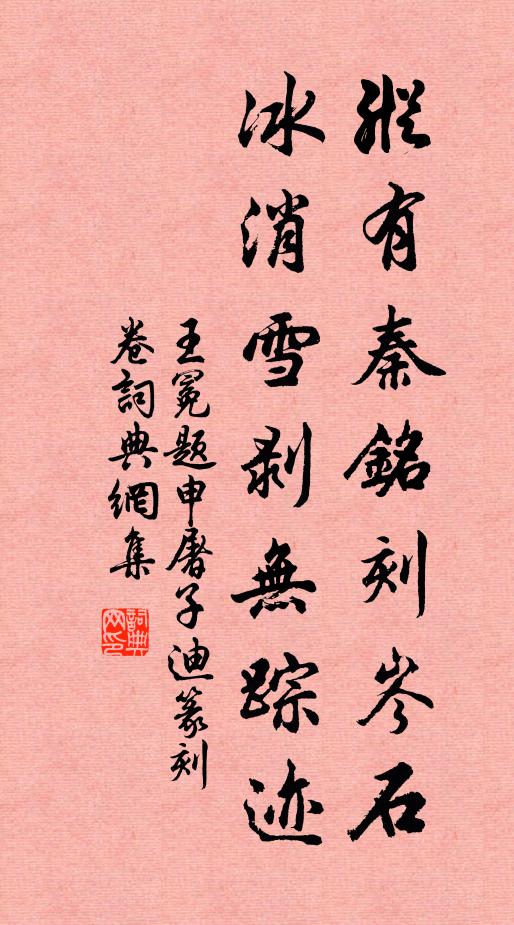 縱有秦銘刻岑石
冰消雪剥無踪迹
王冕题申屠子迪篆刻
卷詞典網集
詞典网印